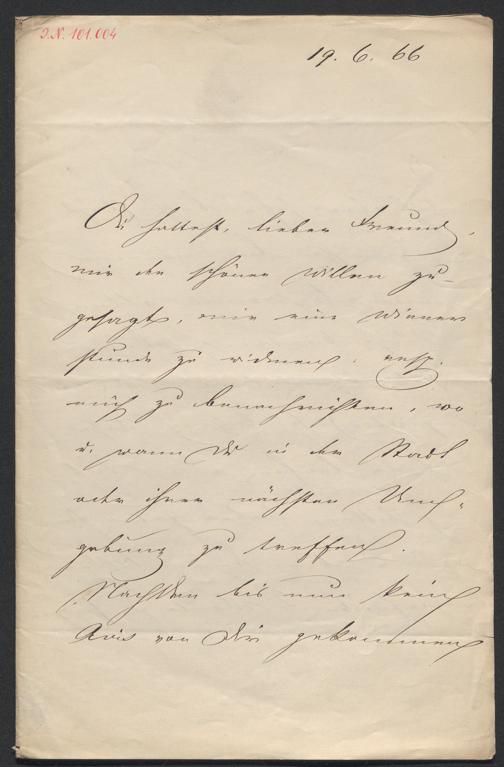 J.N. 101.004
19. 6. 66
Du hattest, lieber Freund,
mir den schönen Willen zu-
gesagt, mir eine Wiener
Stunde zu widmen, resp.
mich zu benachrichten, wo
u. wann Du in der Stadt
oder ihrer nächsten Um-
gebung zu treffen.
Nachdem bis nun kein
Avis von Dir gekommen